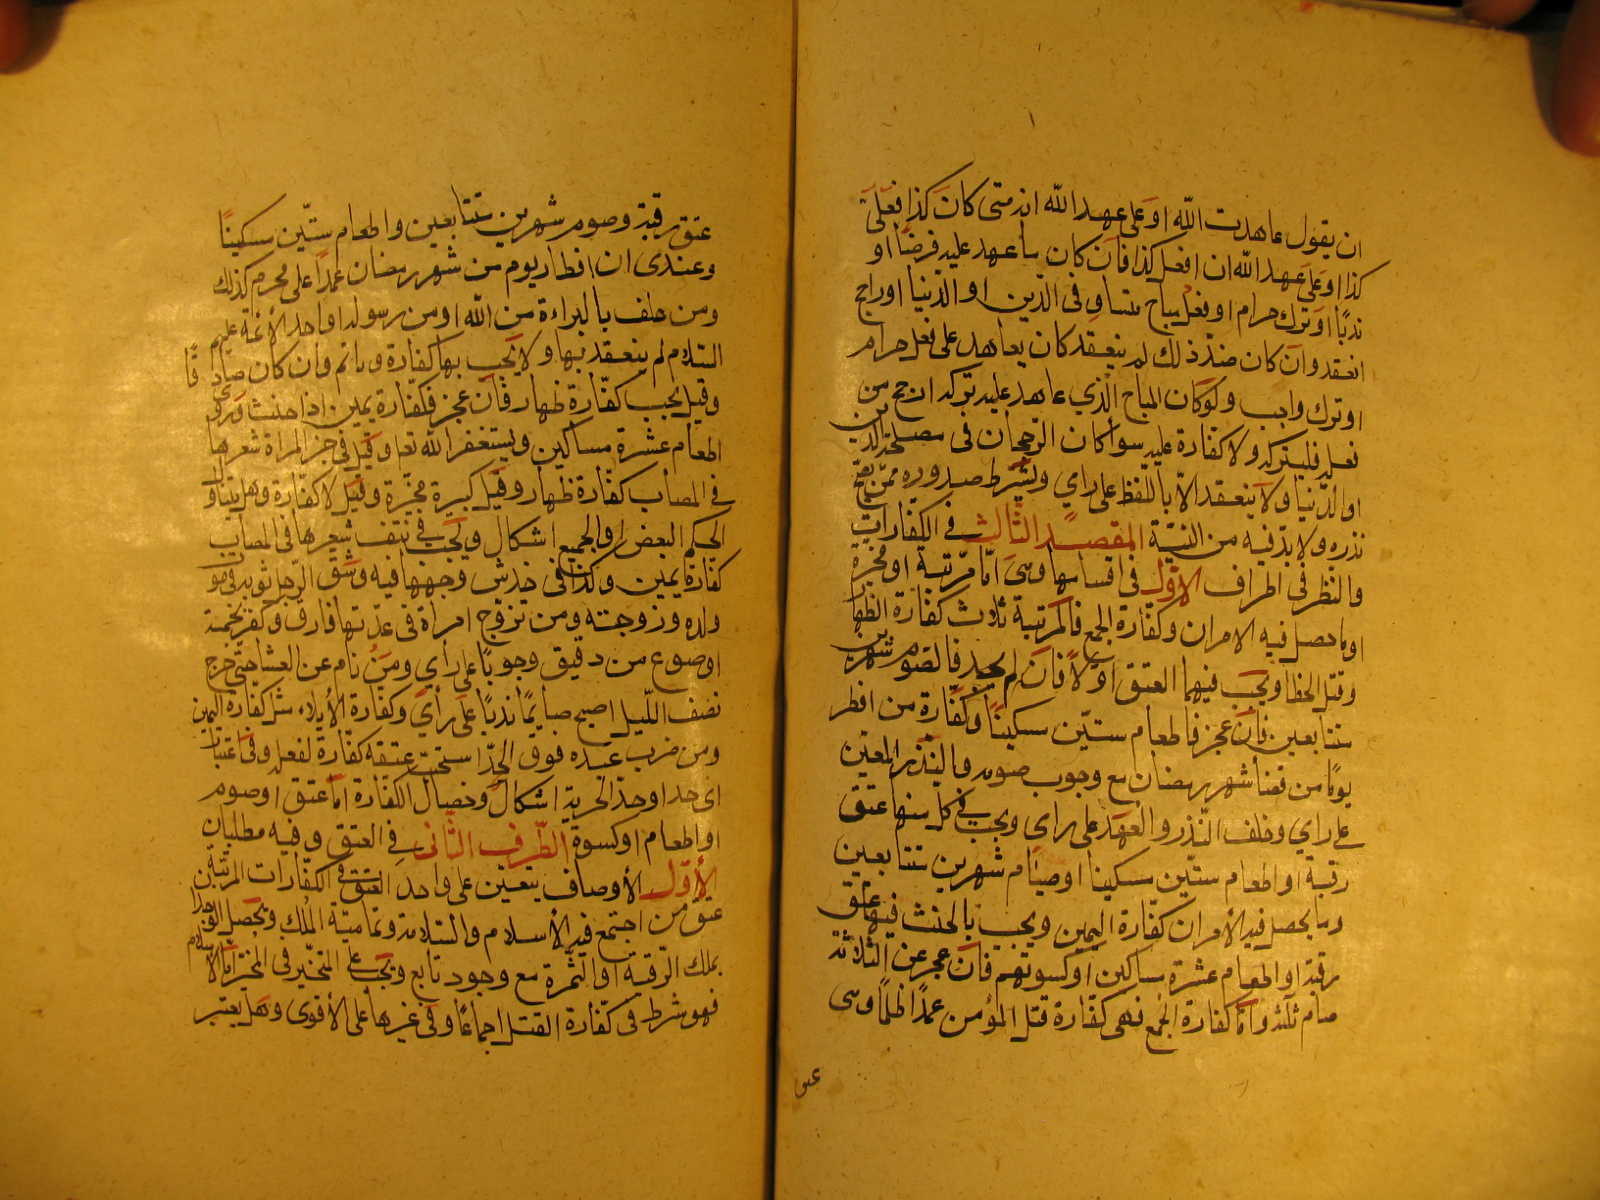 ان يقول عاهدت الله او علي عهد الله انه متى كان كذا فعلي
كذا او علي عهد الله ان افعل كذا فان كان ما عهد عليه فرضا او
ندبا او ترك حرام او فعل مباح متساو في الدين او الدنيا او راجح
انعقد وان كان ضد ذلك لم ينعقد كان يعاهد على فعل حرام
او ترك واجب ولو كان المباح الذي عاهد عليه تركه ارجح من
فعله فليتركه ولا كفارة عليه سوا كان الرجحان في مصلحة الدين
او الدنيا ولا ينعقد الا باللفظ على راي ويشترط صدوره ممن يصح
نذره ولا بد فيه من النية المقصد الثالث في الكفارات
والنظر في اطراف الاول في اقسامها وهي اما مرتبة او مخيرة
او ما حصل فيه الامران وكفارة الجمع فالمرتبة ثلاث كفارة الظهار
وقتل الخطا ويجب فيهما العتق اولا فان لم يجد فالصوم شهرين
متتابعين فان عجز فاطعام ستين مسكينا وكفارة من افطر
يوما من قضا شهر رمضان مع وجوب صومه والنذر المعين
على راي وخلف النذر والعهد على راي ويجب في كل منها عتق
رقبة او اطعام ستين مسكينا او صيام شهرين متتابعين
وما يحصل فيه الأمران كفارة اليمين ويجب بالحنث فيها عتق
رقبة او اطعام عشرة مساكين او كسوتهم فان عجز عن الثلاثة
صام ثلثة واما كفارة الجمع فهي كفارة قتل المؤمن عمدا ظلما وهي
عتق
عتق رقبة وصوم شهرين متتابعين واطعام ستين مسكينا
وعندى ان افطار يوم من شهر رمضان عمدا على محرم كذلك
ومن حلف بالبراءة من الله او من رسوله او احد الأئمة عليهم
السلام لم ينعقد بها ولا يجب بها كفارة وياثم وان كان صادقا
وقيل يجب كفارة ظهار فان عجز فكفارة يمين اذا حنث وروي
اطعام عشرة مساكين ويستغفر الله تعا وقيل في جز المراة شعرها
في المصاب كفارة ظهار وقيل كبيرة مخيرة وقيل لا كفارة وهل يتناول
الحكم البعض او الجميع اشكال ويجب في نتف شعرها في المصاب
كفارة يمين وكذا في خدش وجهها فيه وشق الرجل ثوبه في موت
ولده وزوجته ومن تزوج امراة في عدتها فارق وكفر بخمسة
اصوع من دقيق وجوبا على رأي ومن نام عن العشا حتى خرج
نصف الليل اصبح صايما ندبا على رأي وكفارة الأيلاء مثل كفارة اليمين
ومن ضرب عبده فوق الحد استحب عتقه كفارة لفعله وفي اعتبار
اى حد او حد الحرية اشكال وخصال الكفارة اما عتق او صوم
او اطعام او كسوة الطرف الثاني في العتق وفيه مطلبان
الأول الأوصاف يتعين على واجد العتق في الكفارات المرتبة
عتق من اجتمع فيه الأسلام والسلامة وتمامية الملك ويحصل الوجدان
بملك الرقبة او الثمرة مع وجود تابع ويجب على المخير في المخيرة اما الاسلام
فهو شرط في كفارة القتل اجماعا وفي غيرها على الأقوى وهل يعتبر